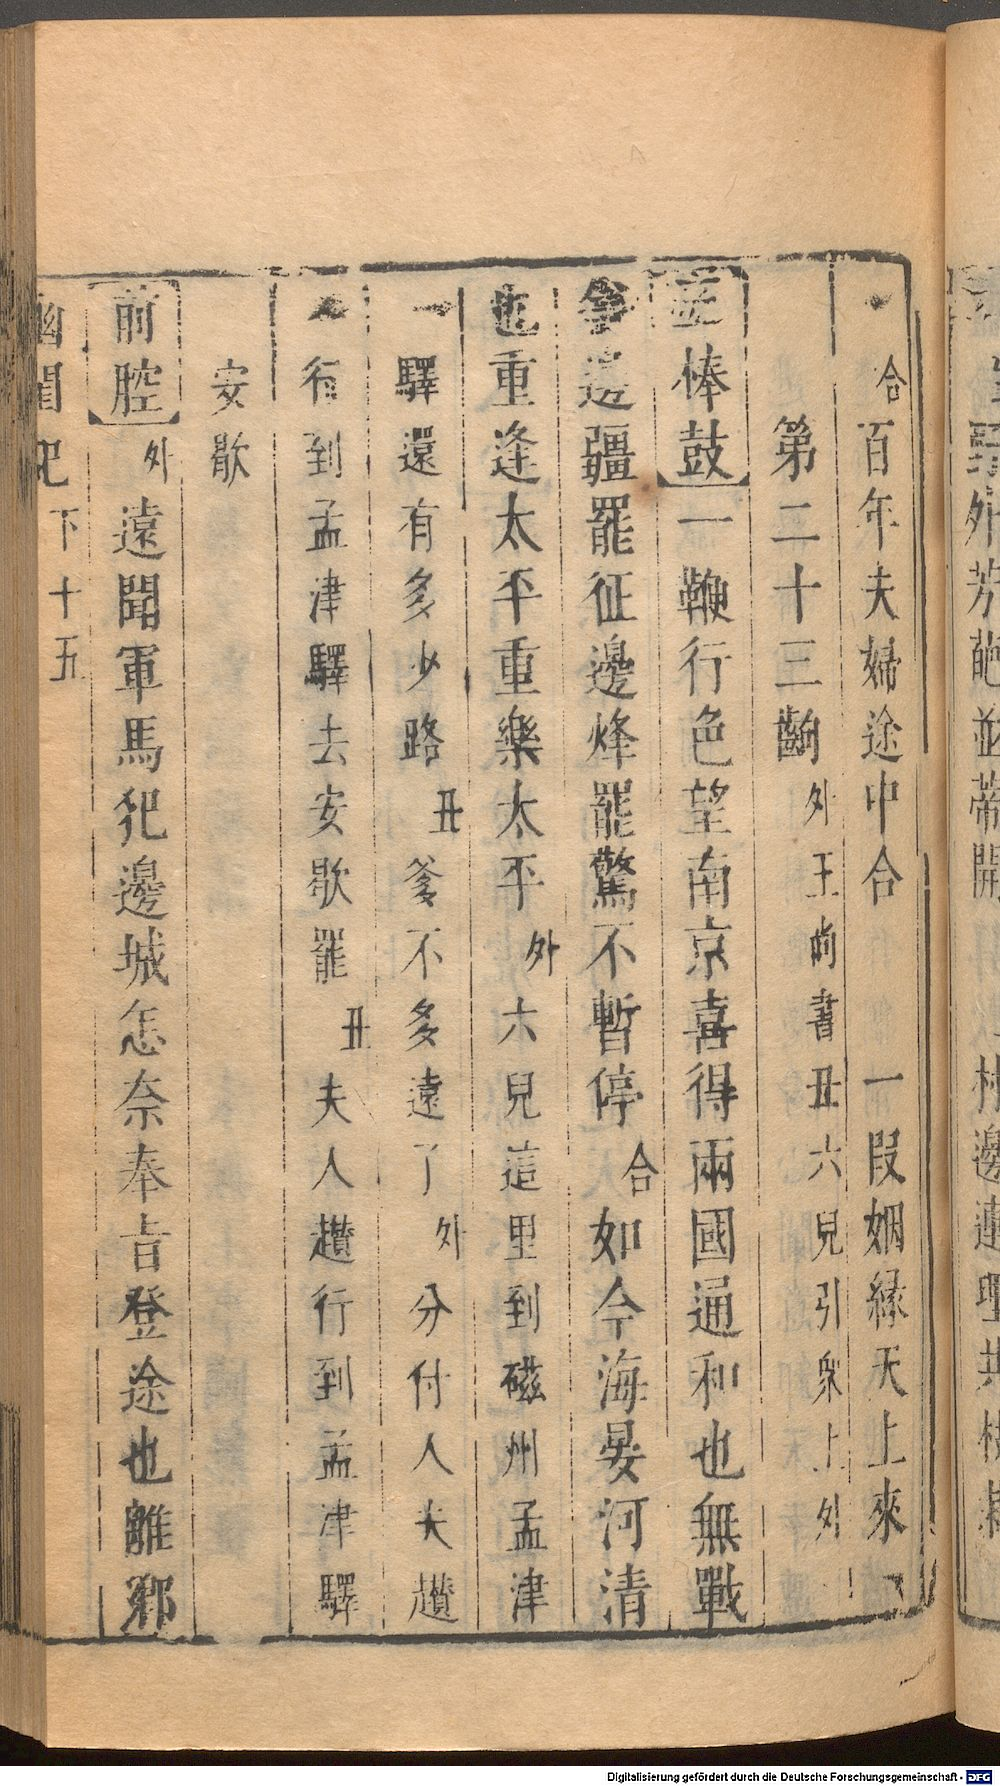 合百年夫婦途中合　一叚姻縁天上來
第二十三齣外王尚書丑六兒引衆上外
棒鼓一鞭行色望南京喜得兩國通和也無戰
爭邊疆罷征邊烽罷驚不暫停合如今海晏河清
也重逢太平重樂太平外六兒這里到磁州孟津
驛還有多少路丑爹不多遠了外分付人夫趲
行到孟津驛去安歇罷丑夫人趲行到孟津驛
安歇
前腔外遠聞軍馬犯邊城怎奈奉旨登途也離鄉
幽閨記 下 十五
芳葩並蒂開
村邊連理共枝
Digitalisierung gefördert durch die Deutsche Forschungsgemeinschaft - DFG